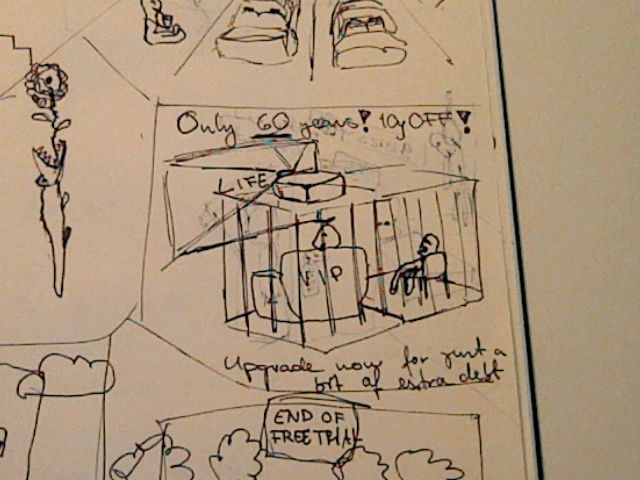 Only 60 years! 10y OFF!
LIFE
VIP
Upgrade now for just a
bit of extra debt
END OF
FREE TRIAL